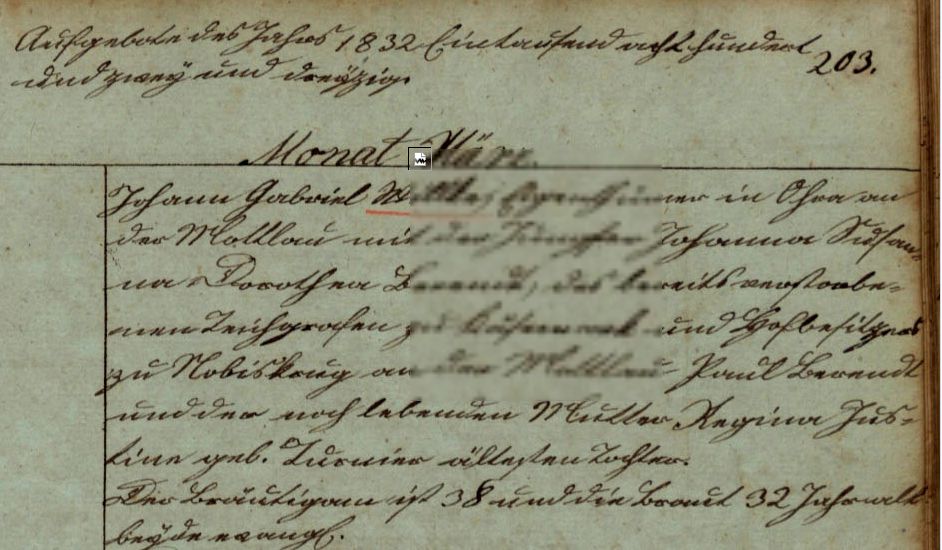 Aufgebote des Jahrs 1832 Eintausend acht hundert
und zwey und dreyzig
203.
Monat März.
Johann Gabriel Eigenthümer in Ohra an
der Mottlau mit der Jungfer Johanna Susan-
na Dorothea Berendt, des bereits verstorbe-
nen Teichgrafen zu und Hofbesitzers
zu Nobiskrug an der Mottlau Paul Berendt
und der noch lebenden Mutter Regina Jus-
tine geb. Turnier ältesten Tochter.
Der Bräutigam ist 38 und die Braut 32 Jahr alt
beyde evangl.